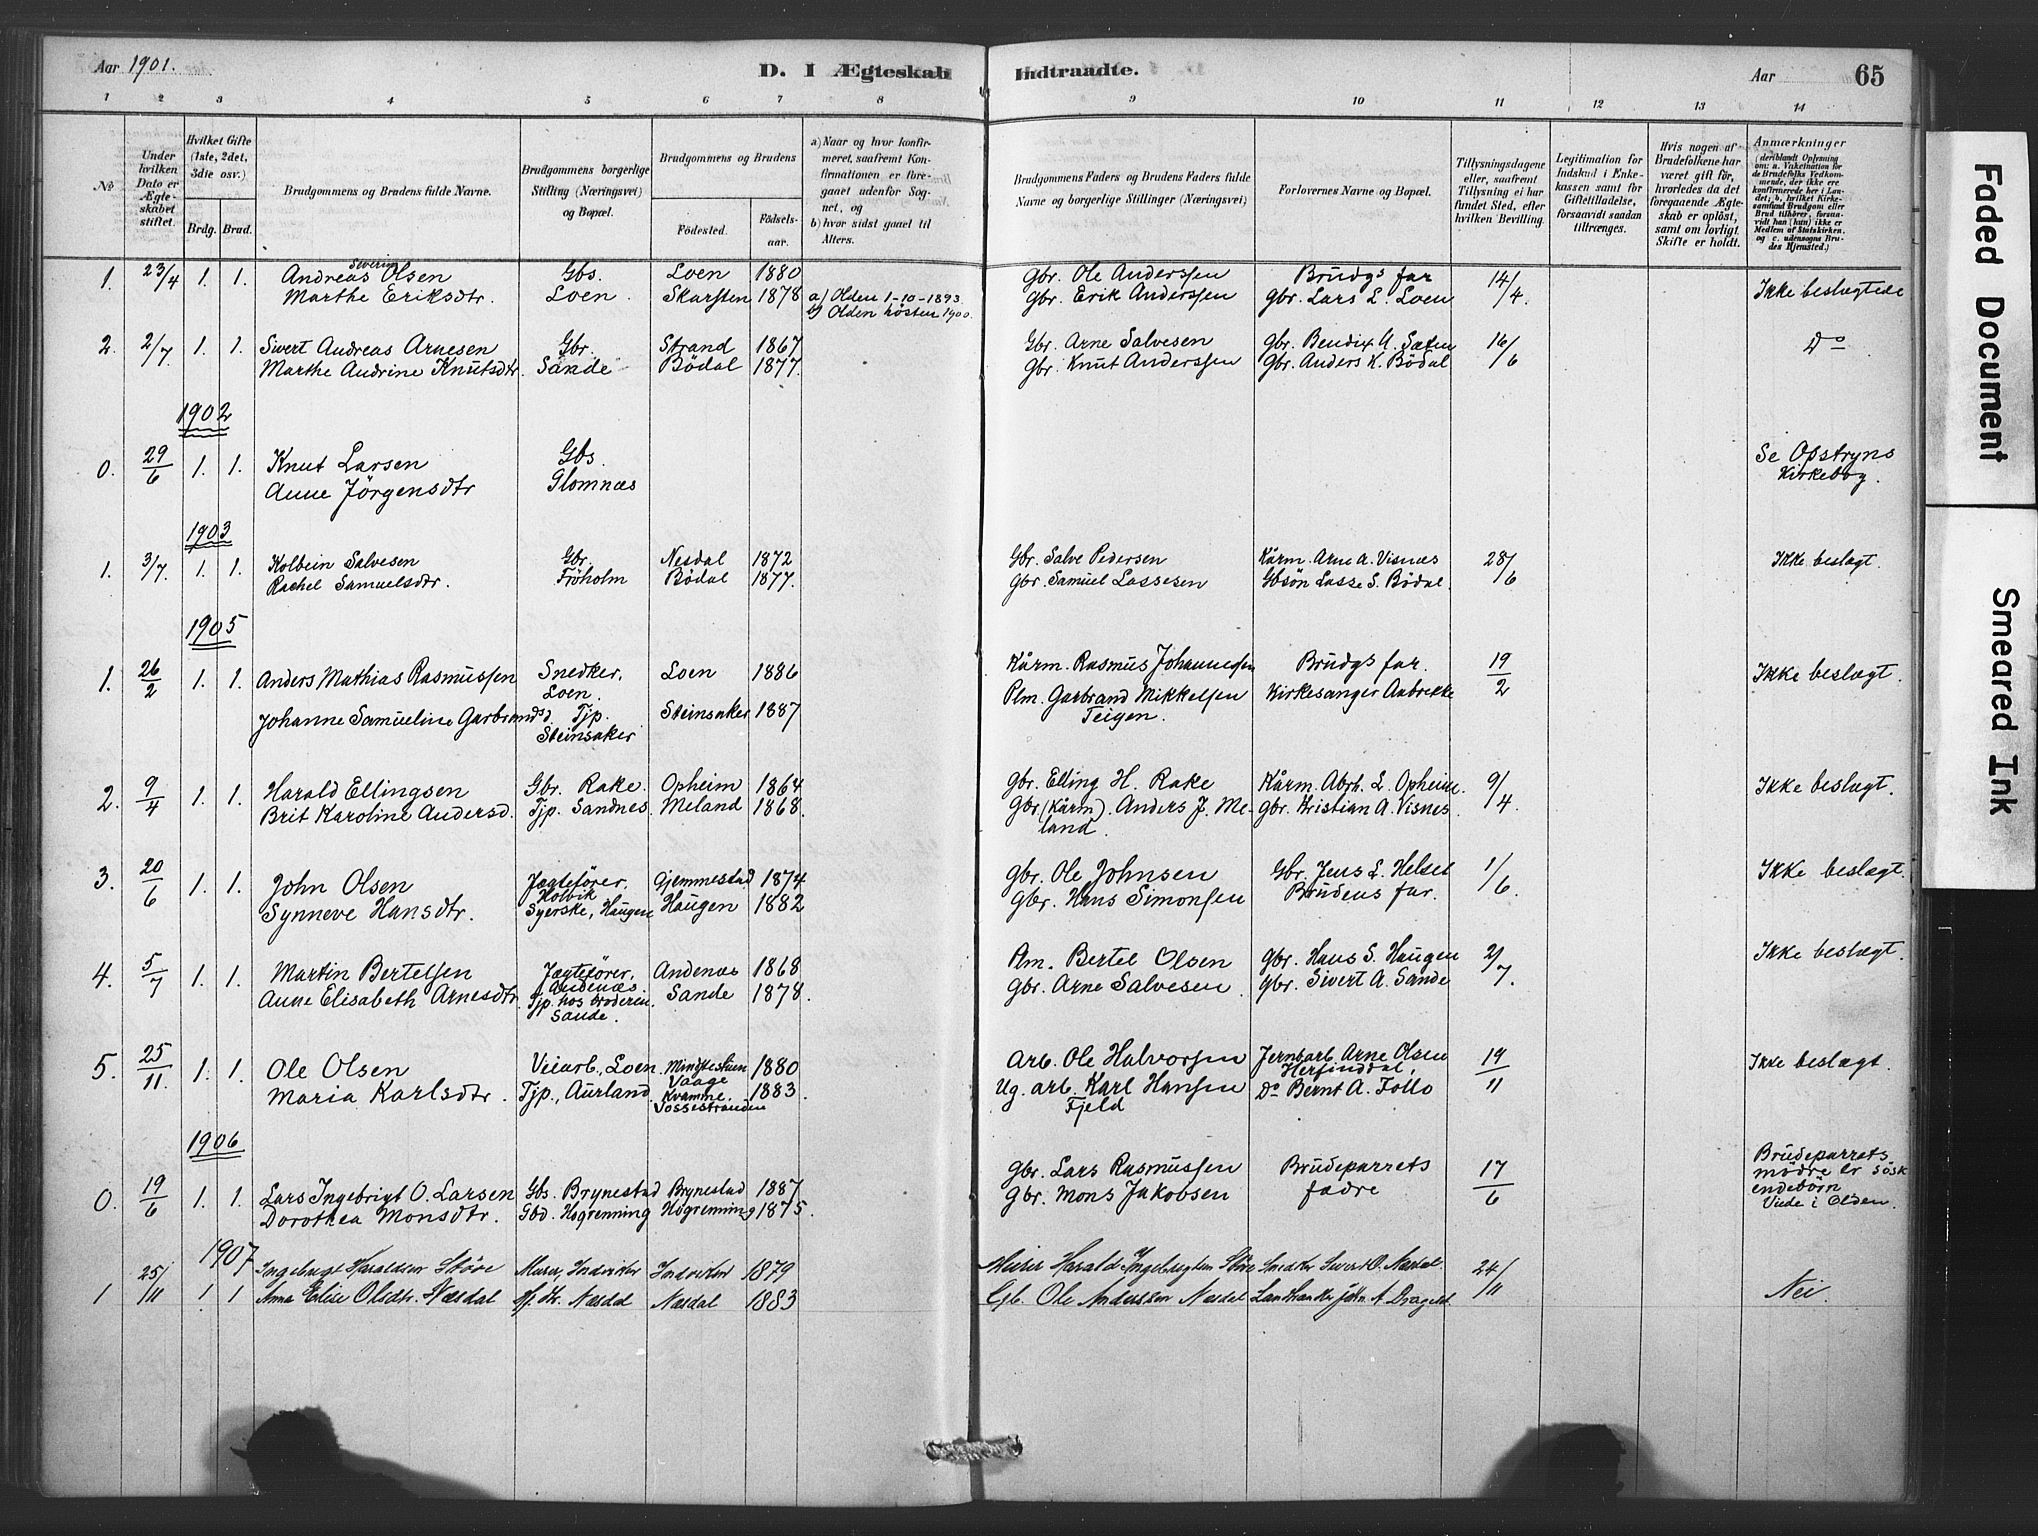 Aar 1901.
D. I Ægteskab Indtraadte.
Aar
65
1 2 3 4 5 6 7 8 9 10 11 12 13 14
No
Under hvilken Dato er Ægteskabet stiftet.
Hvilket Gifte (1ste, 2det, 3die osv.)
Brdg. Brud.
Brudgommens og Brudens fulde Navne.
Brudgommens borgerlige Stilling (Næringsvei) og Bopæl.
Brudgommens og Brudens
Födested. Födselsaar.
a) Naar og hvor konfirmeret, saafremt Konfirmationen er foregaaet udenfor Sognet, og
b) hvor sidst gaaet til Alters.
Brudgommens Faders og Brudens Faders fulde Navne og borgerlige Stillinger (Næringsvei)
Forlovernes Navne og Bopæl.
Tillysningsdagene eller, saafremt Tillysning ei har fundet Sted, efter hvilken Bevilling.
Legitimation for Indskud i Enkekassen samt for Giftetilladelse, forsaavidt saadan tiltrænges.
Hvis nogen af Brudefolkene har været gift før, hvorledes da det foregaaende Ægteskab er opløst, samt om lovligt Skifte er holdt.
Anmærkninger
(deriblandt Oplysning om: a. Vakcination for de Brudefolks Vedkommende, der ikke ere konfirmerede her i Landet; b. hvilket Kirkesamfund Brudgom eller Brud tilhører, forsaavidt han (hun) ikke er Medlem af Statskirken, og c. udensogns Brudes Hjemsted.)
1. 23/4 1. 1. Andreas Severin Olsen Gbs. Loen 1880 Gbr. Ole Anderssen Brudgs far 14/4. Ikke beslægtede
Marthe Eriksdtr. Loen. Skarsten 1878 a) Olden 1-10-1893. Gbr. Erik Anderssen Gbr. Lars L. Loen
b) Olden høsten 1900.
2. 2/7 1. 1. Sivert Andreas Arnesen Gbr. Strand 1867 Gbr. Arne Salvesen Gbr. Bendix A. Sæten 16/6 Do
Marthe Andrine Knutsdtr. Sande Bödal 1877. Gbr. Knut Anderssen Gbr. Anders K. Bödal
1902
0. 29/6 1. 1. Knut Larsen Gbs. Se Opstryns
Anne Jörgensdtr Glomnæs Kirkebog.
1903
1. 3/7. 1. 1. Kolbein Salvesen Gbr. Nesdal 1872 Gbr. Salve Pedersen Kårm. Arne A. Visnæs 28/6 Ikke beslægt.
Rachel Samuelsdtr. Fröholm Bödal 1877. Gbr. Samuel Lassesen Gbsön Lasse S. Bödal.
1905
1. 26/2 1. 1. Anders Mathias Rasmussen Snedker, Loen 1886 Kårm. Rasmus Johannessen Brudgs far. 19/2 Ikke beslægt.
Loen. Plm. Garbrand Mikkelsen Kirkesanger Aabrekke
Johanne Samueline Garbrandsd. Tjp. Steinsaker 1887 Teigen.
Steinsaker
2. 9/4 1. 1. Harald Ellingsen Gbr. Rake. Opheim 1864 Gbr. Elling H. Rake Kårm. Abrh. L. Opheim. 9/4. Ikke beslægt.
Brit Karoline Andersd. Tjp. Sandnes. Meland 1868. Gbr. (Kårm). Anders J. Me- Gbr. Kristian A. Visnes.
land.
3. 20/6 1. 1. John Olsen Jægtefører, Gjemmestad 1874 Gbr. Ole Johnsen Gbr. Jens L. Helset 1/6. Ikke beslægt.
Holvik
Synneve Hansdtr. Syerske, Haugen Haugen 1882 Gbr. Hans Simonsen Brudens far.
4. 5/7 1. 1. Martin Bertelsen Jægtefører, Andenæs 1868 Plm. Bertel Olsen Gbr. Hans S. Haugen 2/7. Ikke beslægt.
Andenæs.
Anne Elisabeth Arnesdtr. Tjp. hos broderen. Sande 1878. Gbr. Arne Salvesen. Gbr. Sivert A. Sande
Sande.
5. 25/11. 1. 1. Ole Olsen Veiarb., Loen. 1880 Arb. Ole Halvorsen Jernbarb. Arne Olsen 19/11 Ikke beslægt.
Vaage Herfinddal,
Maria Karlsdtr. Tjp., Aurland. Kvamme, 1883. Ug. arb. Karl Hansen Do Bernt A. Follo
Vossestranden Fjeld
1906
0. 19/6 1. 1. Lars Ingebrigt O. Larsen Gbs. Brynestad Brynestad 1887 Gbr. Lars Rasmussen Brudeparrets 17/6 Brudeparrets
Dorothea Monsdtr. Gbd. Hogrenning Hogrenning 1875. Gbr. Mons Jakobsen fædre mødre er søsk
endebörn
Viede i Olden.
1907
1 25/11 1 1 Ingebrigt Haraldsen Störe Murer, Inderöen Inderöen 1879 Murer Harald Ingebrigtsen Störe Snedker Sivert O. Næsdal. 24/11 Nei.
Anna Elise Olsdtr. Næsdal Næsdal Næsdal 1883 Gb. Ole Anderssen Næsdal Landhandler John A Drageset.
Faded Document
Smeared Ink